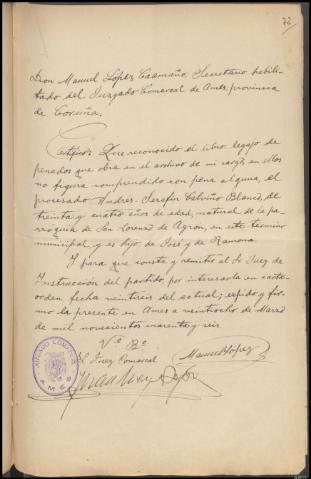 72
Don Manuel López Caamaño, Secretario habili-
tado del Juzgado Comarcal de Ames, provincia
de Coruña,
Certifico: Que reconocido el libro legajo de
penados que obra en el archivo de mi cargo, en ellos
no figura comprendido con pena alguna, el
procesado Andres-Serafin Calviño Blanco, de
treinta y cuatro años de edad, natural de la pa-
rroquia de San Lorenzo de Agron, en este termino
municipal, y es hijo de José y de Ramona.
Y para que conste y remitir al Sr Juez de
Instrucción del partido, por interesarla en carta-
orden fecha veintitres del actual; expido y fir-
mo la presente en Ames a veintiocho de Marzo
de mil novecientos cuarenta y seis.
Vº Bº
El Juez Comarcal
Manuel López
JUZGADO COMARCAL
AMES